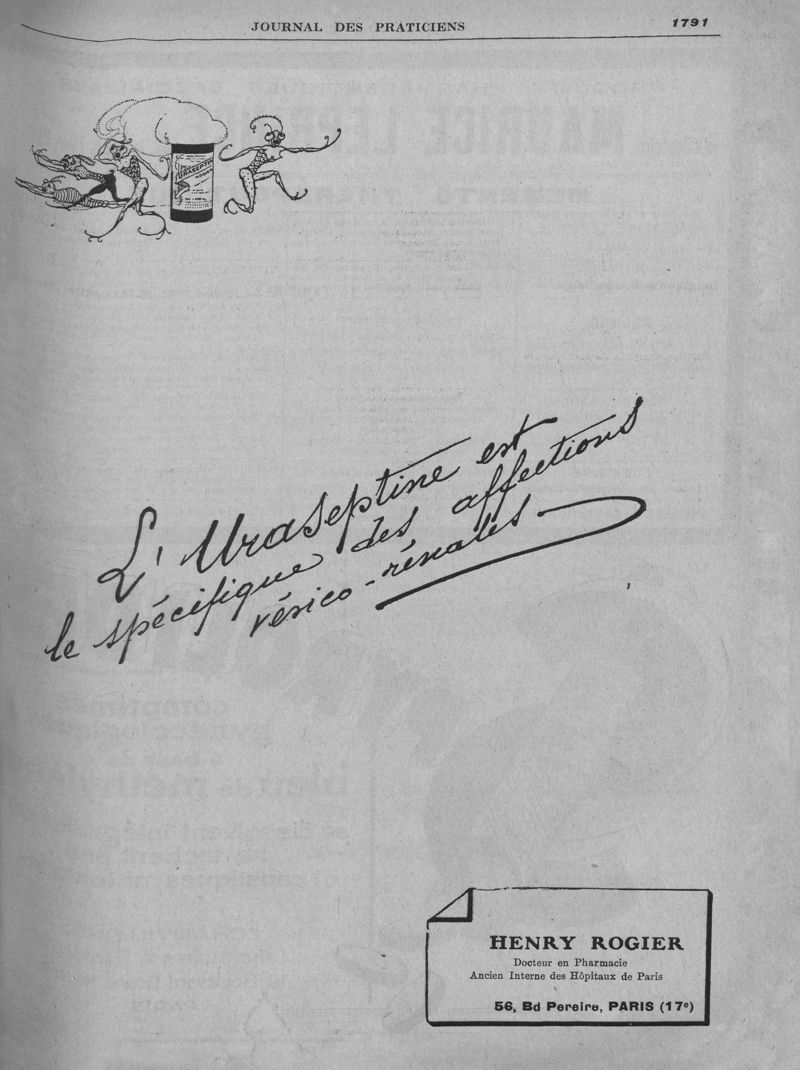 JOURNAL DES PRATICIENS
1791
URASEPTINE
L'Uraseptine est
le spécifique des affections
vésico-rénales
HENRY ROGIER
Docteur en Pharmacie
Ancien Interne des Hôpitaux de Paris
56, Bd Pereire, PARIS (17e)